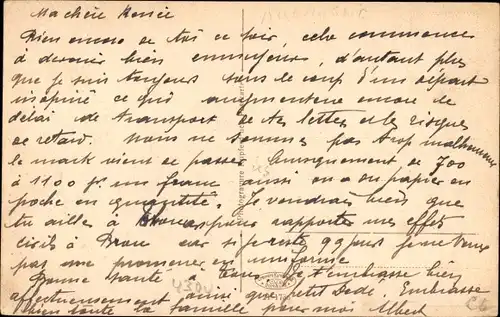 Ma chère Renée
Rien encore de toi ce soir, cela commence
à devenir bien ennuyeux, d'autant plus
que je suis toujours sous le coup d'un départ
inopiné ce qui augmentera encore le
délai de transport de tes lettres et le risque
de retard. Nous ne sommes pas trop malheureux
le mark vient de passer brusquement de 700
à 1100 pr un franc aussi on a du papier en
poche en quantité. Je voudrais bien que
tu ailles à pour rapporter mes effets
civils à car si je reste 99 jours je ne veux
pas me promener en uniforme
Bonne santé à tous je t'embrasse bien
affectueusement ainsi que petit Dédé. Embrasse
bien toute la famille pour moi Albert
4304